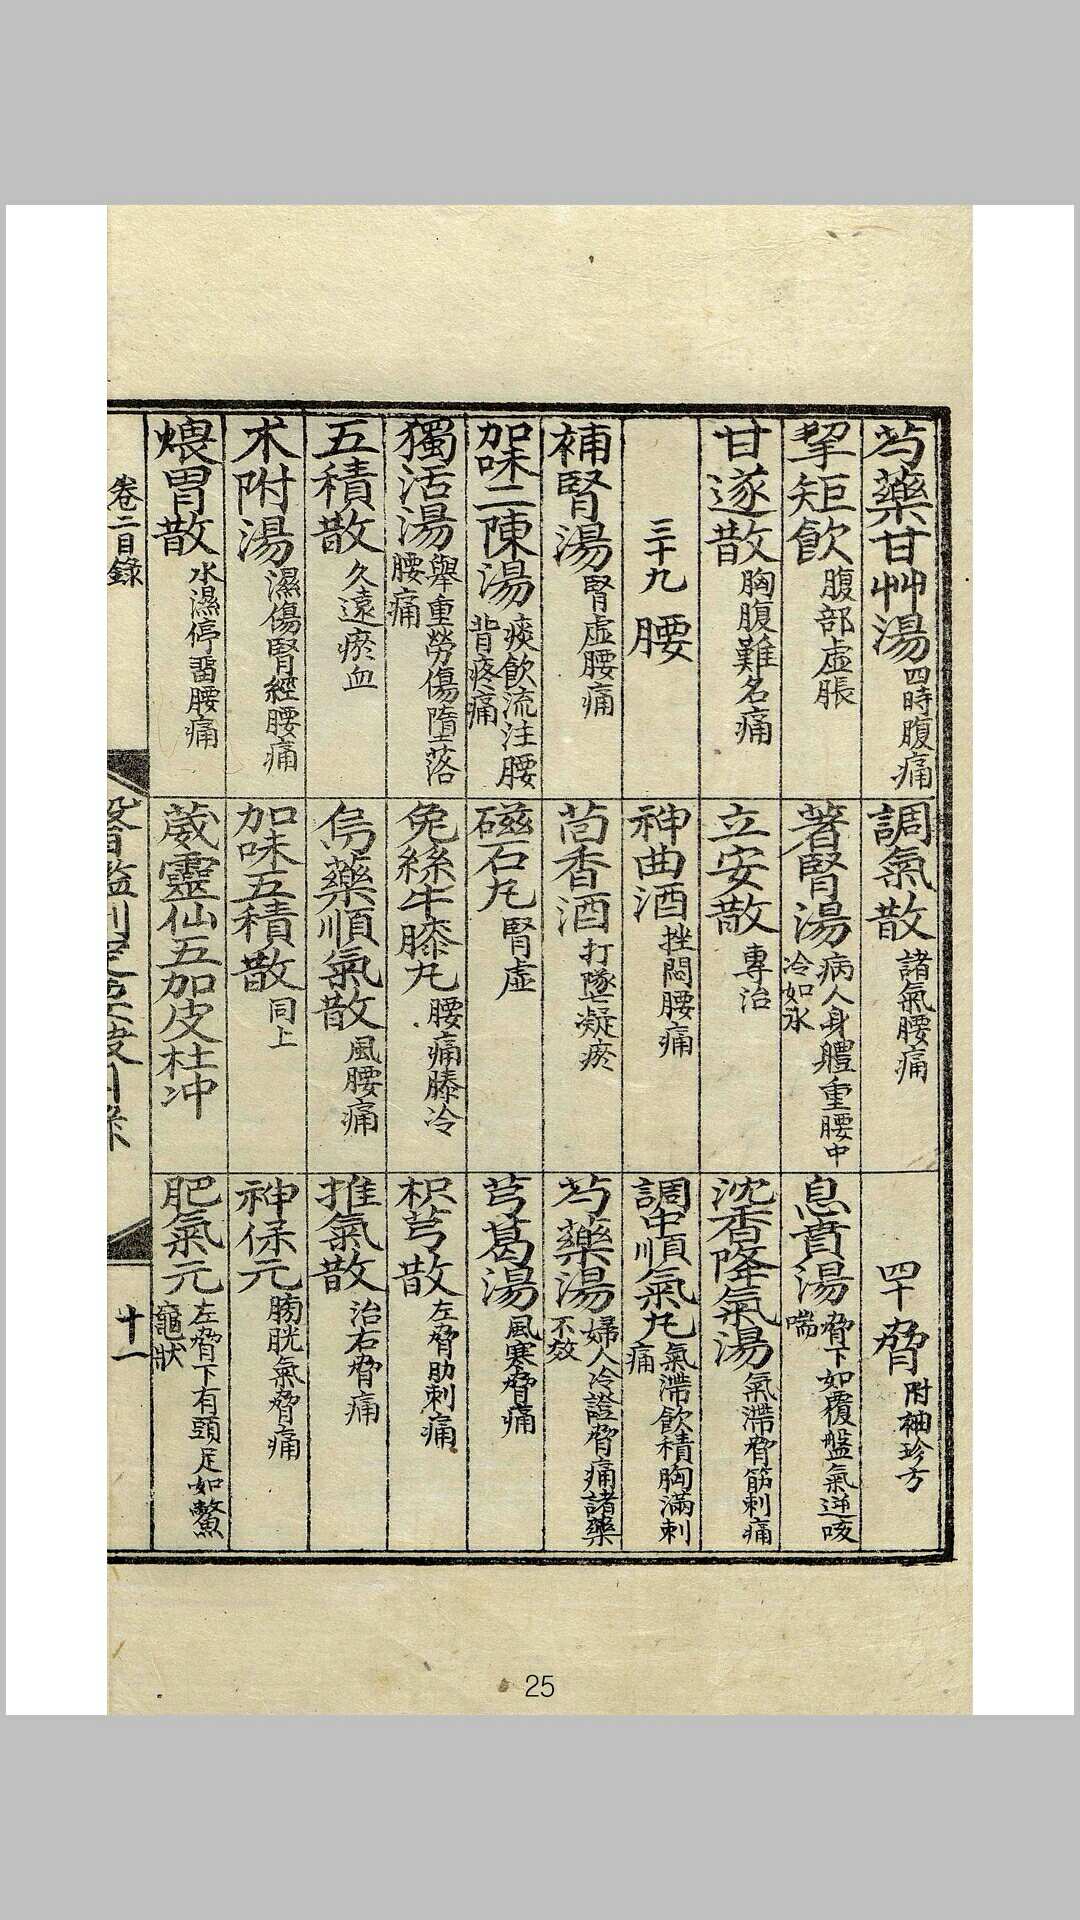 芍藥甘艸湯 四時腹痛
挐矩飮 腹部虛脹
甘遂散 胸腹難名痛
三十九 腰
補腎湯 腎虛腰痛
加味二陳湯 痰飮流注腰
背疼痛
獨活湯 擧重勞傷墮落
腰痛
五積散 久遠瘀血
朮附湯 濕傷腎經腰痛
煨胃散 水濕停畱腰痛
調氣散 諸氣腰痛
著腎湯 病人身體重腰中
冷如氷
立安散 專治
神曲酒 挫悶腰痛
茴香酒 打墜凝瘀
磁石丸 腎虛
兔絲牛膝丸 腰痛膝冷
烏藥順氣散 風腰痛
加味五積散 同上
葳靈仙五加皮杜冲
四十 脅 附袖珍方
息賁湯 脅下如覆盤氣逆咳
喘
沈香降氣湯 氣滯脅筋刺痛
調中順氣丸 氣滯飮積胸滿刺
痛
芍藥湯 婦人冷證脅痛諸藥
不效
芎葛湯 風寒脅痛
枳芎散 左脅肋刺痛
推氣散 治右脅痛
神保元 膀胱氣脅痛
肥氣元 左脅下有頭足如鱉
龜狀
卷二目錄
十一
25